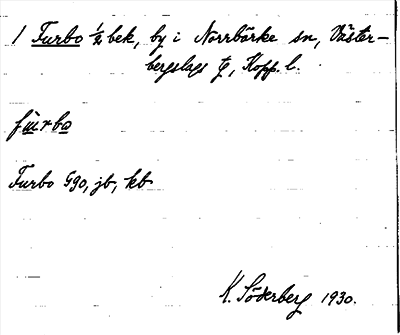 1 Furbo ½ bek, by i Norrbärke sn, Väster-
bergslags tg, Kopp. l.
fùrba
Furbo G90, jb, kb
K. Söderberg 1930.